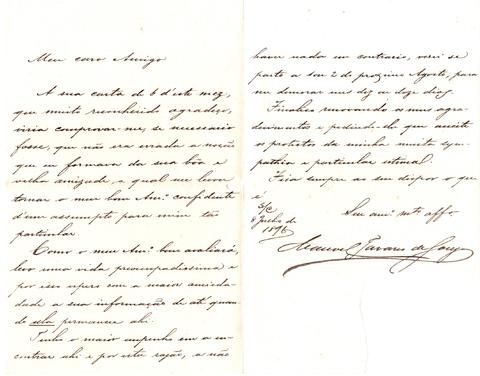 Meu caro Amigo
A sua carta de 6 d'este mez,
que muito reconhecido agradeço,
viria comprovar-me, se necessario
fosse, que não era errada a noção
que eu formava da sua bôa e
velha amizade, a qual me levou
tomar o meu bom Am.º confidente
d'um assumpto para mim tão
particular.
Como o meu Am.º bem avaliará,
levo uma vida preoccupadissima e
por isso espero com a maior ancie-
dade a sua informação de até quan-
do ella permanece ahi.
Tenho o maior empenho em a en-
contrar ahi e por esta razão, a não
haver nada em contrario, verei se
parto a 1 ou 2 de proximo Agosto, para
me demorar uns dez ou doze dias.
Finaliso renovando os meus agra-
decimentos e pedindo-lhe que acceite
os protestos da minha muita sym-
pathia e particular estima.
Fica sempre ao seu dispor o que
é
S/C
8 Julho de
1896
Seu am.º m.to aff.º
Manuel Tavares de